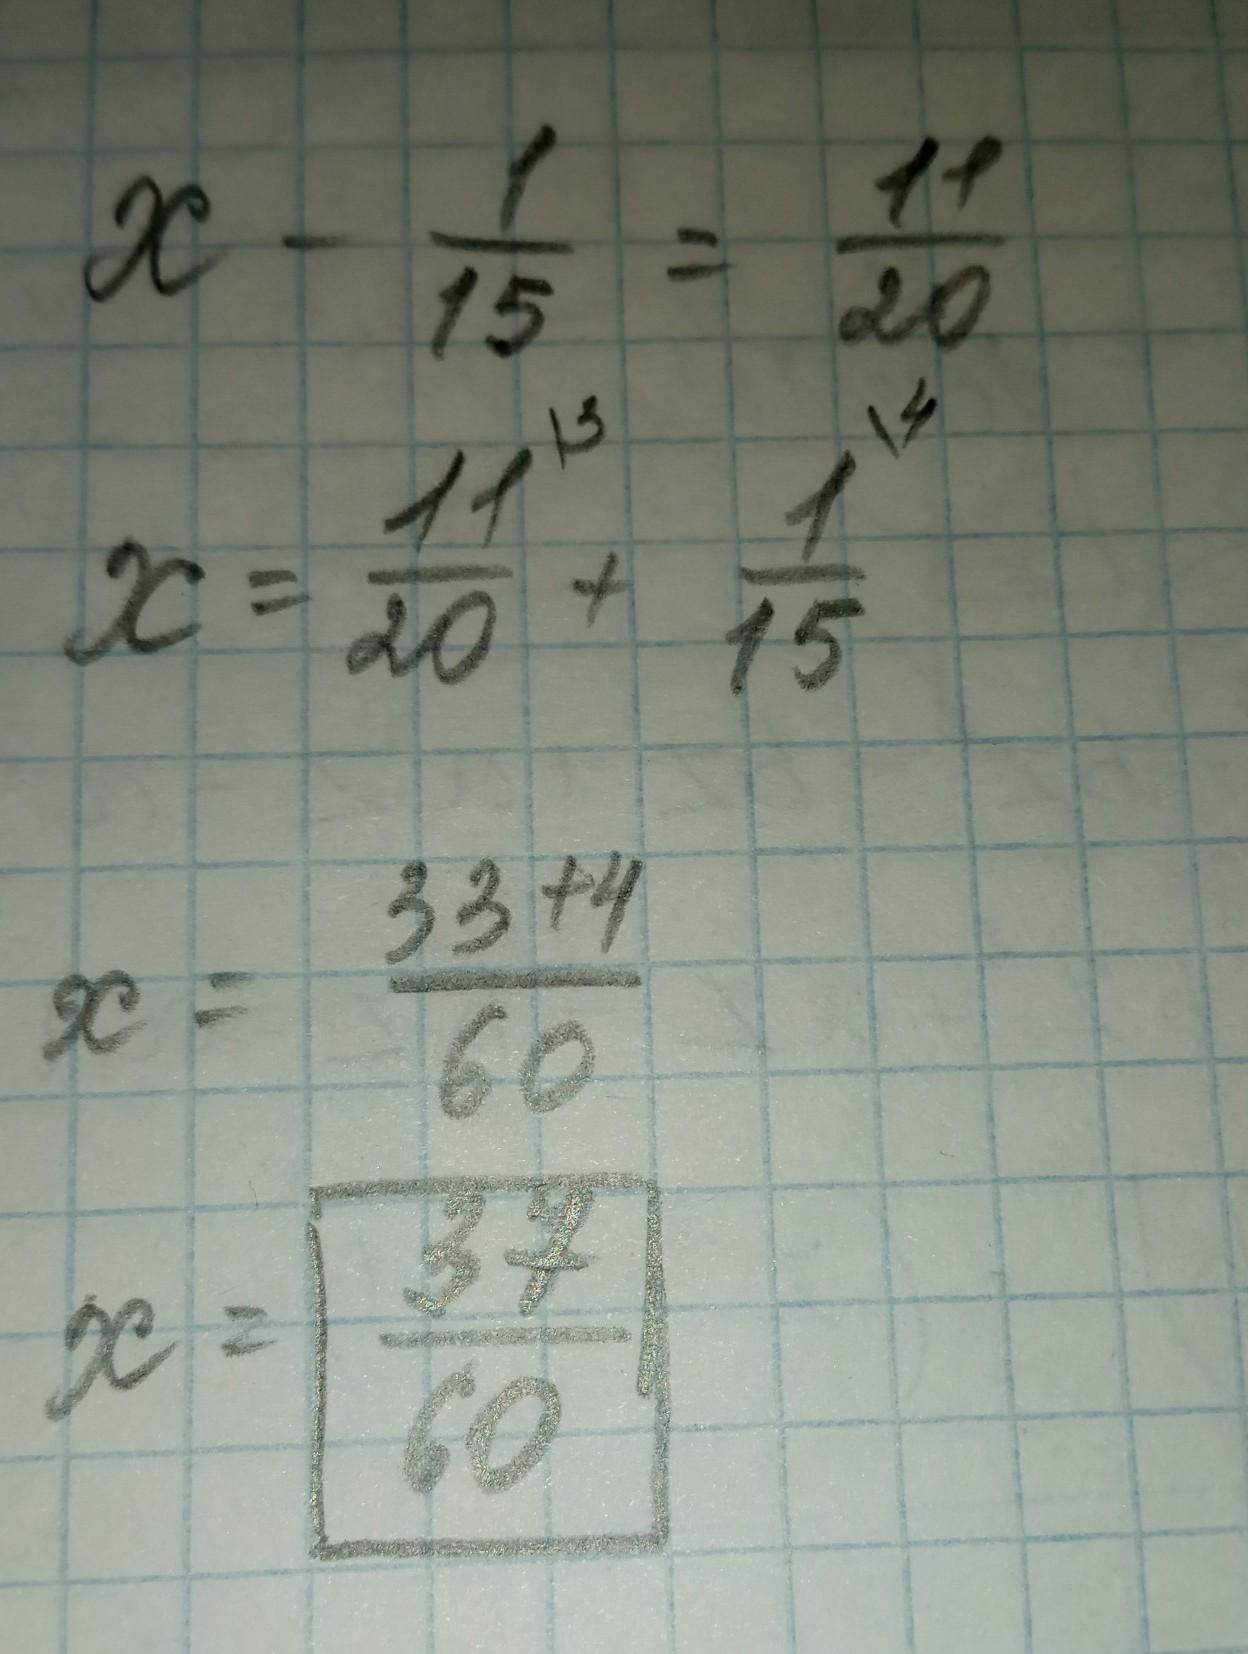 x - 1/15 = 11/20
x = 11\3/20 + 1\4/15
x = 33+4/60
x = 37/60